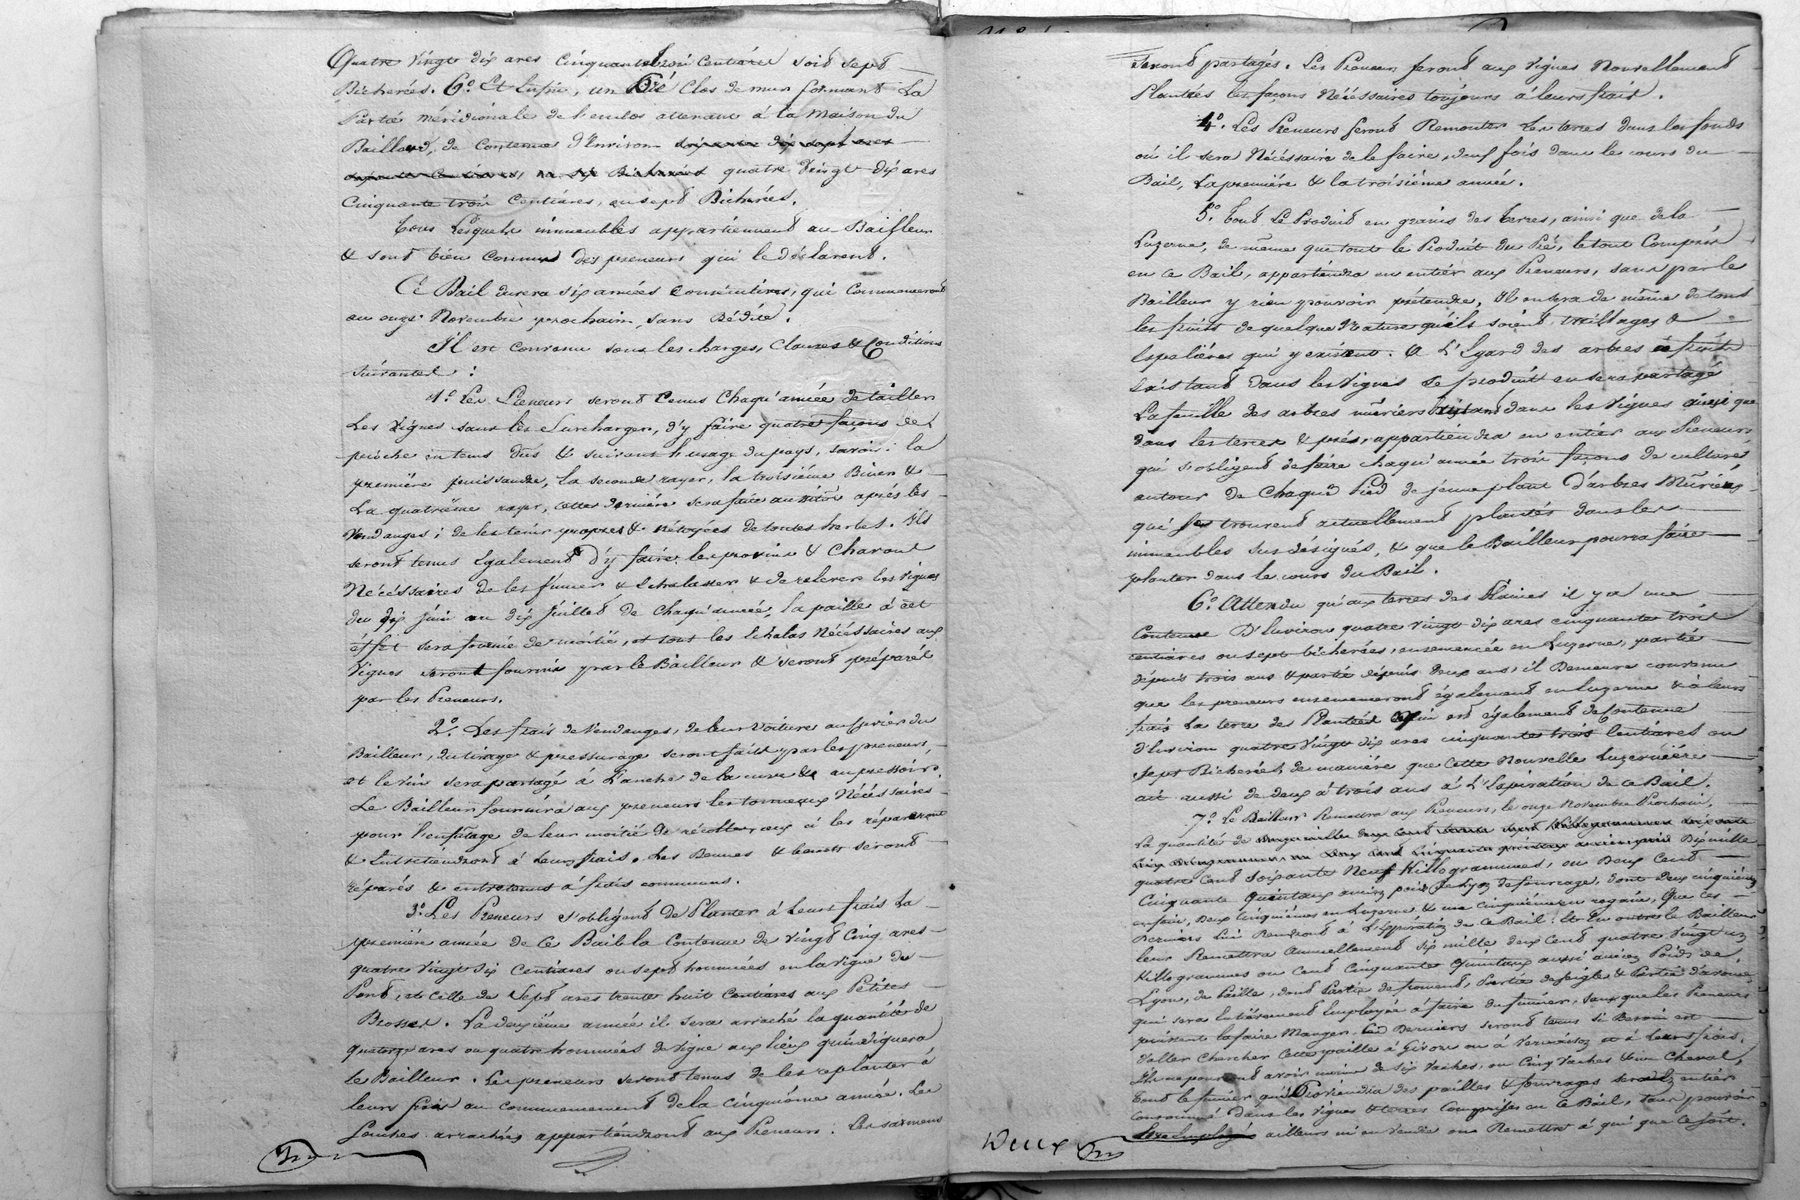 Quatre Vingt dix ares Cinquante trois Centiares soit sept
Bicherées. 6.o Et Enfin, un Pré Clos de mur formant La
Partie méridionale de l'enclos attenant à la Maison du
Bailleur, de Contenue d'Environ soixante dix sept ares
quatre Vingt dix ares
Cinquante trois Centiares, ou sept Bicherées.
Tous Lesquels immeubles appartiennent au Bailleur
& sont bien Connus des preneurs qui le déclarent.
Ce Bail durera six années Consécutives, qui Commenceront
au onze Novembre prochain, sans Dédite.
Il est Convenu sous les charges, Clauses & Conditions
suivantes :
1.o Les Preneurs seront Tenus Chaqu'année de tailler
Les Vignes sans les Surcharger, d'y faire quatre façons de
pioche en tems dûs & suivant l'usage du pays, savoir : la
première puissandre, la seconde rayer, la troisième Biner &
La quatrième rayer, cette dernière sera faite aussitôt après les
Vendanges ; de les tenir propres & nétoyées de toutes herbes. Ils
seront tenus Egalement d'y faire les provins & Chavons
Nécéssaires de les fumer & échalasser & de relever les Vignes
du dix juin au dix juillet de chaqu'année, la paille à cet
effet sera fournie de moitié, et tout les échalas Nécéssaires aux
Vignes seront fournis par le Bailleur & seront préparés
par les Preneurs.
2.o Les frais de Vendanges, de leur Voiture au du
Bailleur, du tirage & pressurage seront faits par les preneurs,
et le vin sera partagé à L'anche de la cuve & au pressoir.
Le Bailleur fournira aux preneurs les tonneaux Nécéssaires
pour l'enfûtage de leur moitié de récolte, eux ci les répareront
& Entretiendront à leurs frais. Les Bennes & seront
réparés & entretenus à frais communs.
3.o Les Preneurs s'obligent de Planter à Leurs frais La
première année de Ce Bail la Contenue de Vingt Cinq ares
quatre Vingt six Centiares ou sept hommées en la Vigne du
Pont, et celle de Sept ares trente huit Centiares aux Petites
Brosses. La deuxième année il sera arraché la quantité de
quatorze ares ou quatre hommées de Vigne aux lieux qu'indiquera
le Bailleur. Les preneurs seront tenus de les replanter à
leurs frais au commencement de la cinquième année. Les
Souches arrachées appartiendront aux Preneurs. Les sarmens
seront partagés. Les Preneurs feront aux Vignes Nouvellement
Plantées les façons Nécéssaires toujours à leurs frais.
4.o Les Preneurs feront Remonter Les terres dans les fonds
où il sera Nécéssaire de le faire, deux fois dans le cours du
Bail, La première & la troisième année.
5.o Tout Le Produit en grains des Terres, ainsi que de la
Luzerne, de même que tout le Produit du Pré, le tout Compris
en ce Bail, appartiendra en entier aux Preneurs, sans par le
Bailleur y rien pouvoir prétendre. Il en sera de même de tous
les fruits de quelque Nature qu'ils soient, treillages &
Espalières qui y existent. A L'Egard des arbres à fruits
Existant dans les Vignes le produit en sera partagé
La feuille des arbres mûriers Existant dans les Vignes ainsi que
dans les terres & prés, appartiendra en entier aux Preneurs
qui s'obligent de faire chaqu'année trois façons de culture
autour de Chaque Pied de jeune plant d'arbres Mûriers
qui se trouvent actuellement plantés dans les
immeubles sus désignés, & que le Bailleur pourra faire
planter dans le cours du Bail.
6.o Attendu qu'aux terres des Plaines il y a une
Contenue D'Environ quatre Vingt dix ares cinquante trois
centiares ou sept bicherées, ensemencée en Luzerne, partie
depuis trois ans & partie depuis deux ans, il Demeure convenu
que les preneurs ensemenceront également en luzerne & à leurs
frais La terre des Plantées qui est également de Contenue
d'Environ quatre Vingt dix ares cinquante trois Centiares ou
sept Bicherées, de manière que Cette Nouvelle Luzernière
ait aussi de deux à trois ans à L'Expiration de ce Bail.
7.o Le Bailleur Remettra aux Preneurs, le onze Novembre Prochain,
La quantité de
Dix mille
quatre Cent soixante Neuf Killogrammes, ou Deux Cent
Cinquante Quintaux ancien poids de Lyon de fourrage, dont deux cinquièmes
en foin, Deux Cinquièmes en Luzerne & un Cinquième en regain, Que ces
Derniers Lui Rendront à L'Expiration de ce Bail. Et En outre le Bailleur
leur Remettra Annuellement Six mille deux Cent quatre Vingt un
Killogrammes ou Cent Cinquante Quintaux aussi ancien Poids de
Lyon, de Paille, dont Partie de froment, Partie de seigle & Partie d'avoine
qui sera Entièrement Employée à faire du fumier, sans que les Preneurs
puissent la faire Manger. Ces Derniers seront tenus si Besoin est
d'aller Chercher Cette paille à Givors ou à Vernaison et à Leurs frais.
Ils ne pourront avoir moins de six Vaches, ou Cinq Vaches & un Cheval,
Tout le fumier qui Proviendra des pailles & fourrages sera en entier
Consommé dans les Vignes & terres Comprises en ce Bail, sans pouvoir
être Employé ailleurs ni en Vendre ou Remettre à qui que ce soit.
Deux